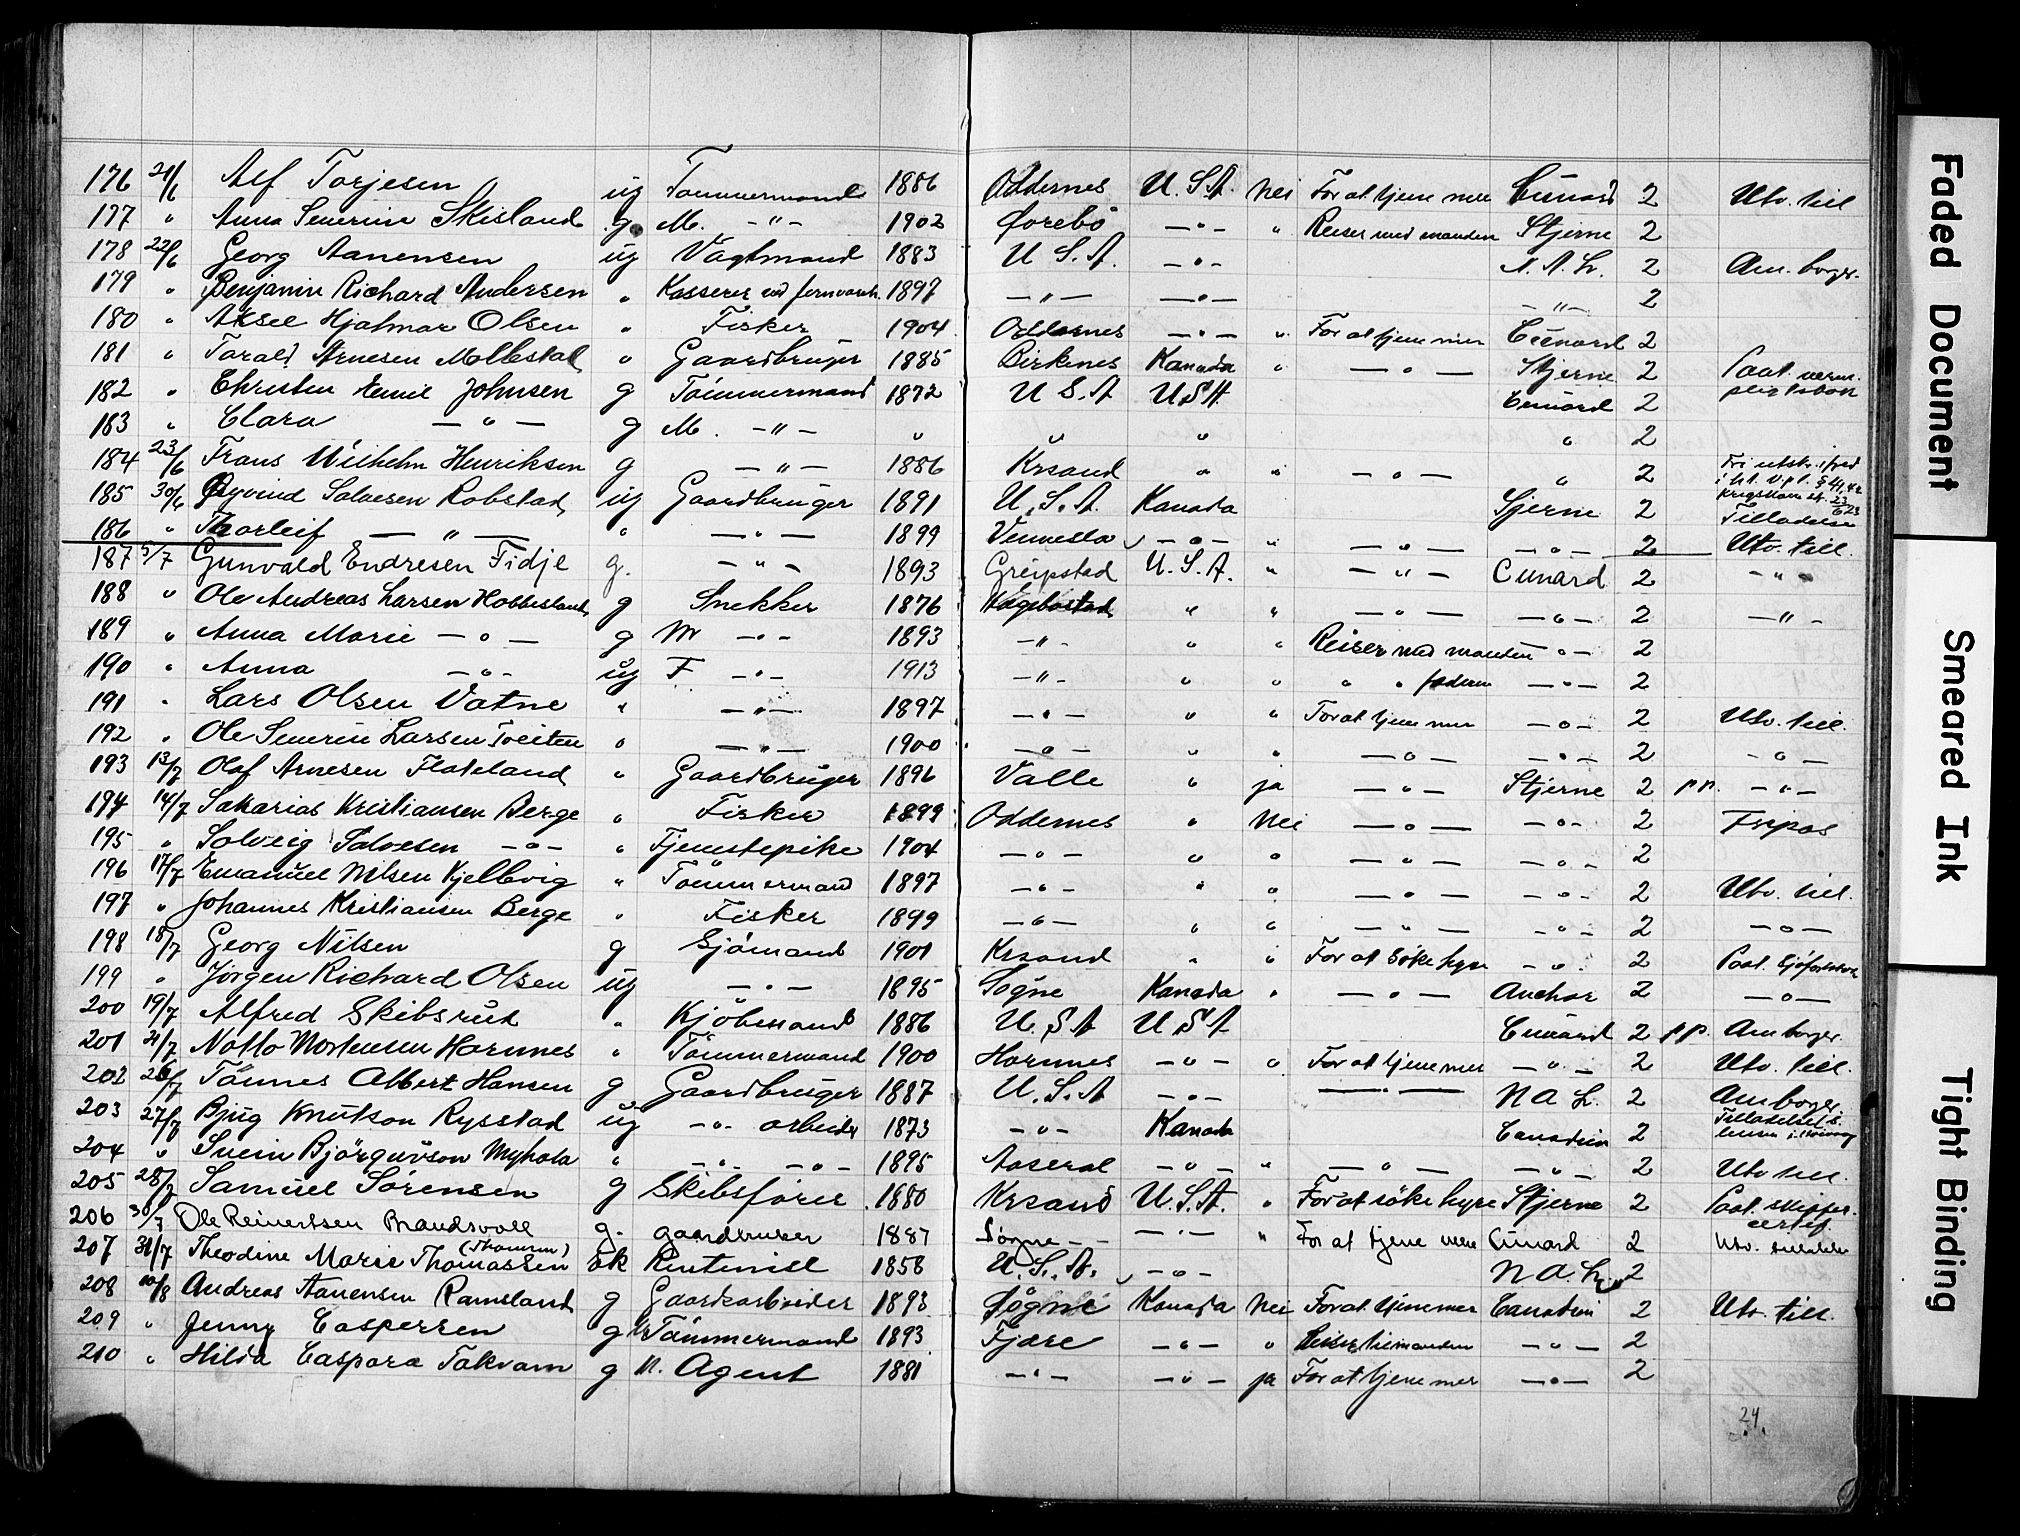 176 21/6 Alf Torjesen ug Tømmermand 1886 Oddernes U.S.A. Nei For at tjene mer Cunard 2 Utv. till
177 " Anna Severine Skisland g. M. -"- 1902 Øvrebö -"- " Reiser med manden Stjerne 2
178 22/6 Georg Aanensen ug Vagtmand 1883 U.S.A. -"- N.A.L. 2 Am. borger.
179 " Benjamin Richard Andersen " Kasserer ved jernvareh. 1897 -"- -"- -"- 2
180 " Aksel Hjalmar Olsen " Fisker 1904. Oddernes -"- " For at tjene mer Cunard 2
181 " Torald Arnesen Mollestad " Gaardbruger 1885 Birkenes Kanada " -"- Stjerne 2 Paat. vernepligtsbok
182 " Christen Emil Johnsen g Tömmermand 1872 U.S.A USA Cunard 2
183 " Clara -"- g M. -"- " " " " 2
184 23/6 Frans Wilhelm Henriksen g -"- 1886 Krsand " " -"- " 2 Fri utskr. i fred i h.t. V.p.l. § 41,42 Krigskom st. 23/6 23
185 30/6 Øyvind Salvesen Robstad ug Gaardbruger 1891 U.S.A. Kanada Sjerne 2 Tilladelse
186 " Thorleif -"- " -"- 1899 Vennesla -"- " -"- -"- 2 Utv. till.
187 5/7 Gunvald Endresen Tidje g. -"- 1893 Greipstad U.S.A. " -"- Cunard 2 -"-
188 " Ole Andreas Larsen Hobbesland g Snekker 1876 Hægebostad " " -"- -"- 2 -"-
189 " Anna Marie -"- g M -"- 1893 -"- " " Reiser med manden -"- 2
190 " Anna -"- ug F -"- 1913 -"- " " " " faderen -"- 2
191 " Lars Olsen Vatne " -"- 1897 -"- " " For at tjene mer -"- 2 Utv. till.
192 " Ole Severin Larsen Tveiten " -"- 1900 -"- " " -"- -"- 2 -"-
193 13/7 Olaf Arnesen Flateland " Gaardbruger 1896 Valle " ja -"- Stjerne 2 p.p. -"-
194 14/7 Sakarias Kristiansen Berge " Fisker 1899 Oddernes " Nei -"- -"- 2 Fripas
195 " Solveig Salvesen -"- " Tjenestepike 1904 -"- " " -"- -"- 2
196 17/7 Emanuel Nilsen Kjellevig " Tömmermand 1897 -"- " " -"- -"- 2 Utv. till.
197 " Johannes Kristiansen Berge " Fisker 1899 -"- " " -"- -"- 2 -"-
198 18/7 Georg Nilsen g Sjömand 1901 Krsand " " For at söke hyre -"- 2 Paat. Sjöfartsbok
199 " Jörgen Richard Olsen ug -"- 1895 Søgne Kanada " -"- Anchor 2 -"-
200 19/7 Alfred Skibsrud " Kjöbmand 1886 U.S.A U.S.A Cunard 2 p.p. Am borger
201 21/7 Notto Mortensen Hornnes " Tömmermand 1900 Hornnes -"- " For at tjene mer -"- 2 Utv. till.
202 26/7 Tönnes Albert Hansen g Gaardbruger 1887 U.S.A -"- -"- N A L. 2 Am borger.
203 27/7 Bjug Knutson Rysstad ug -"- arbeider 1873 -"- Kanada Canadian 2
204 " Svein Björguvson " -"- -"- 1895 Aaseral -"- " -"- -"- 2 Utv till.
205 28/7 Samuel Sørensen g Skibsfører 1880 Krsand U.S.A. " For at söke hyre Stjerne 2 Paat. skipper-certif.
206 30/7 Ole Reinertsen Brandsvoll g. gaardbruker 1887 Søgne -"- " For at tjene mere Cunard 2 Utv. tilladelse
207 31/7 Theodine Marie Thomassen (Thomsen) Ek Rentenist 1858 U.S.A. -"- N A. L. 2
208 10/8 Andreas Aanensen Ramsland g Gaardsarbeider 1893 Søgne Kanada Nei For at tjene mer Canadian 2 Utv. till.
209 " Jenny Caspersen g M Tömmermand 1893 Fjære -"- " Reiser til manden -"- 2
210 " Hilda Caspara Takvam g M. Agent 1881 -"- -"- ja For at tjene mer -"- 2
24.
Faded Document
Smeared Ink
Tight Binding